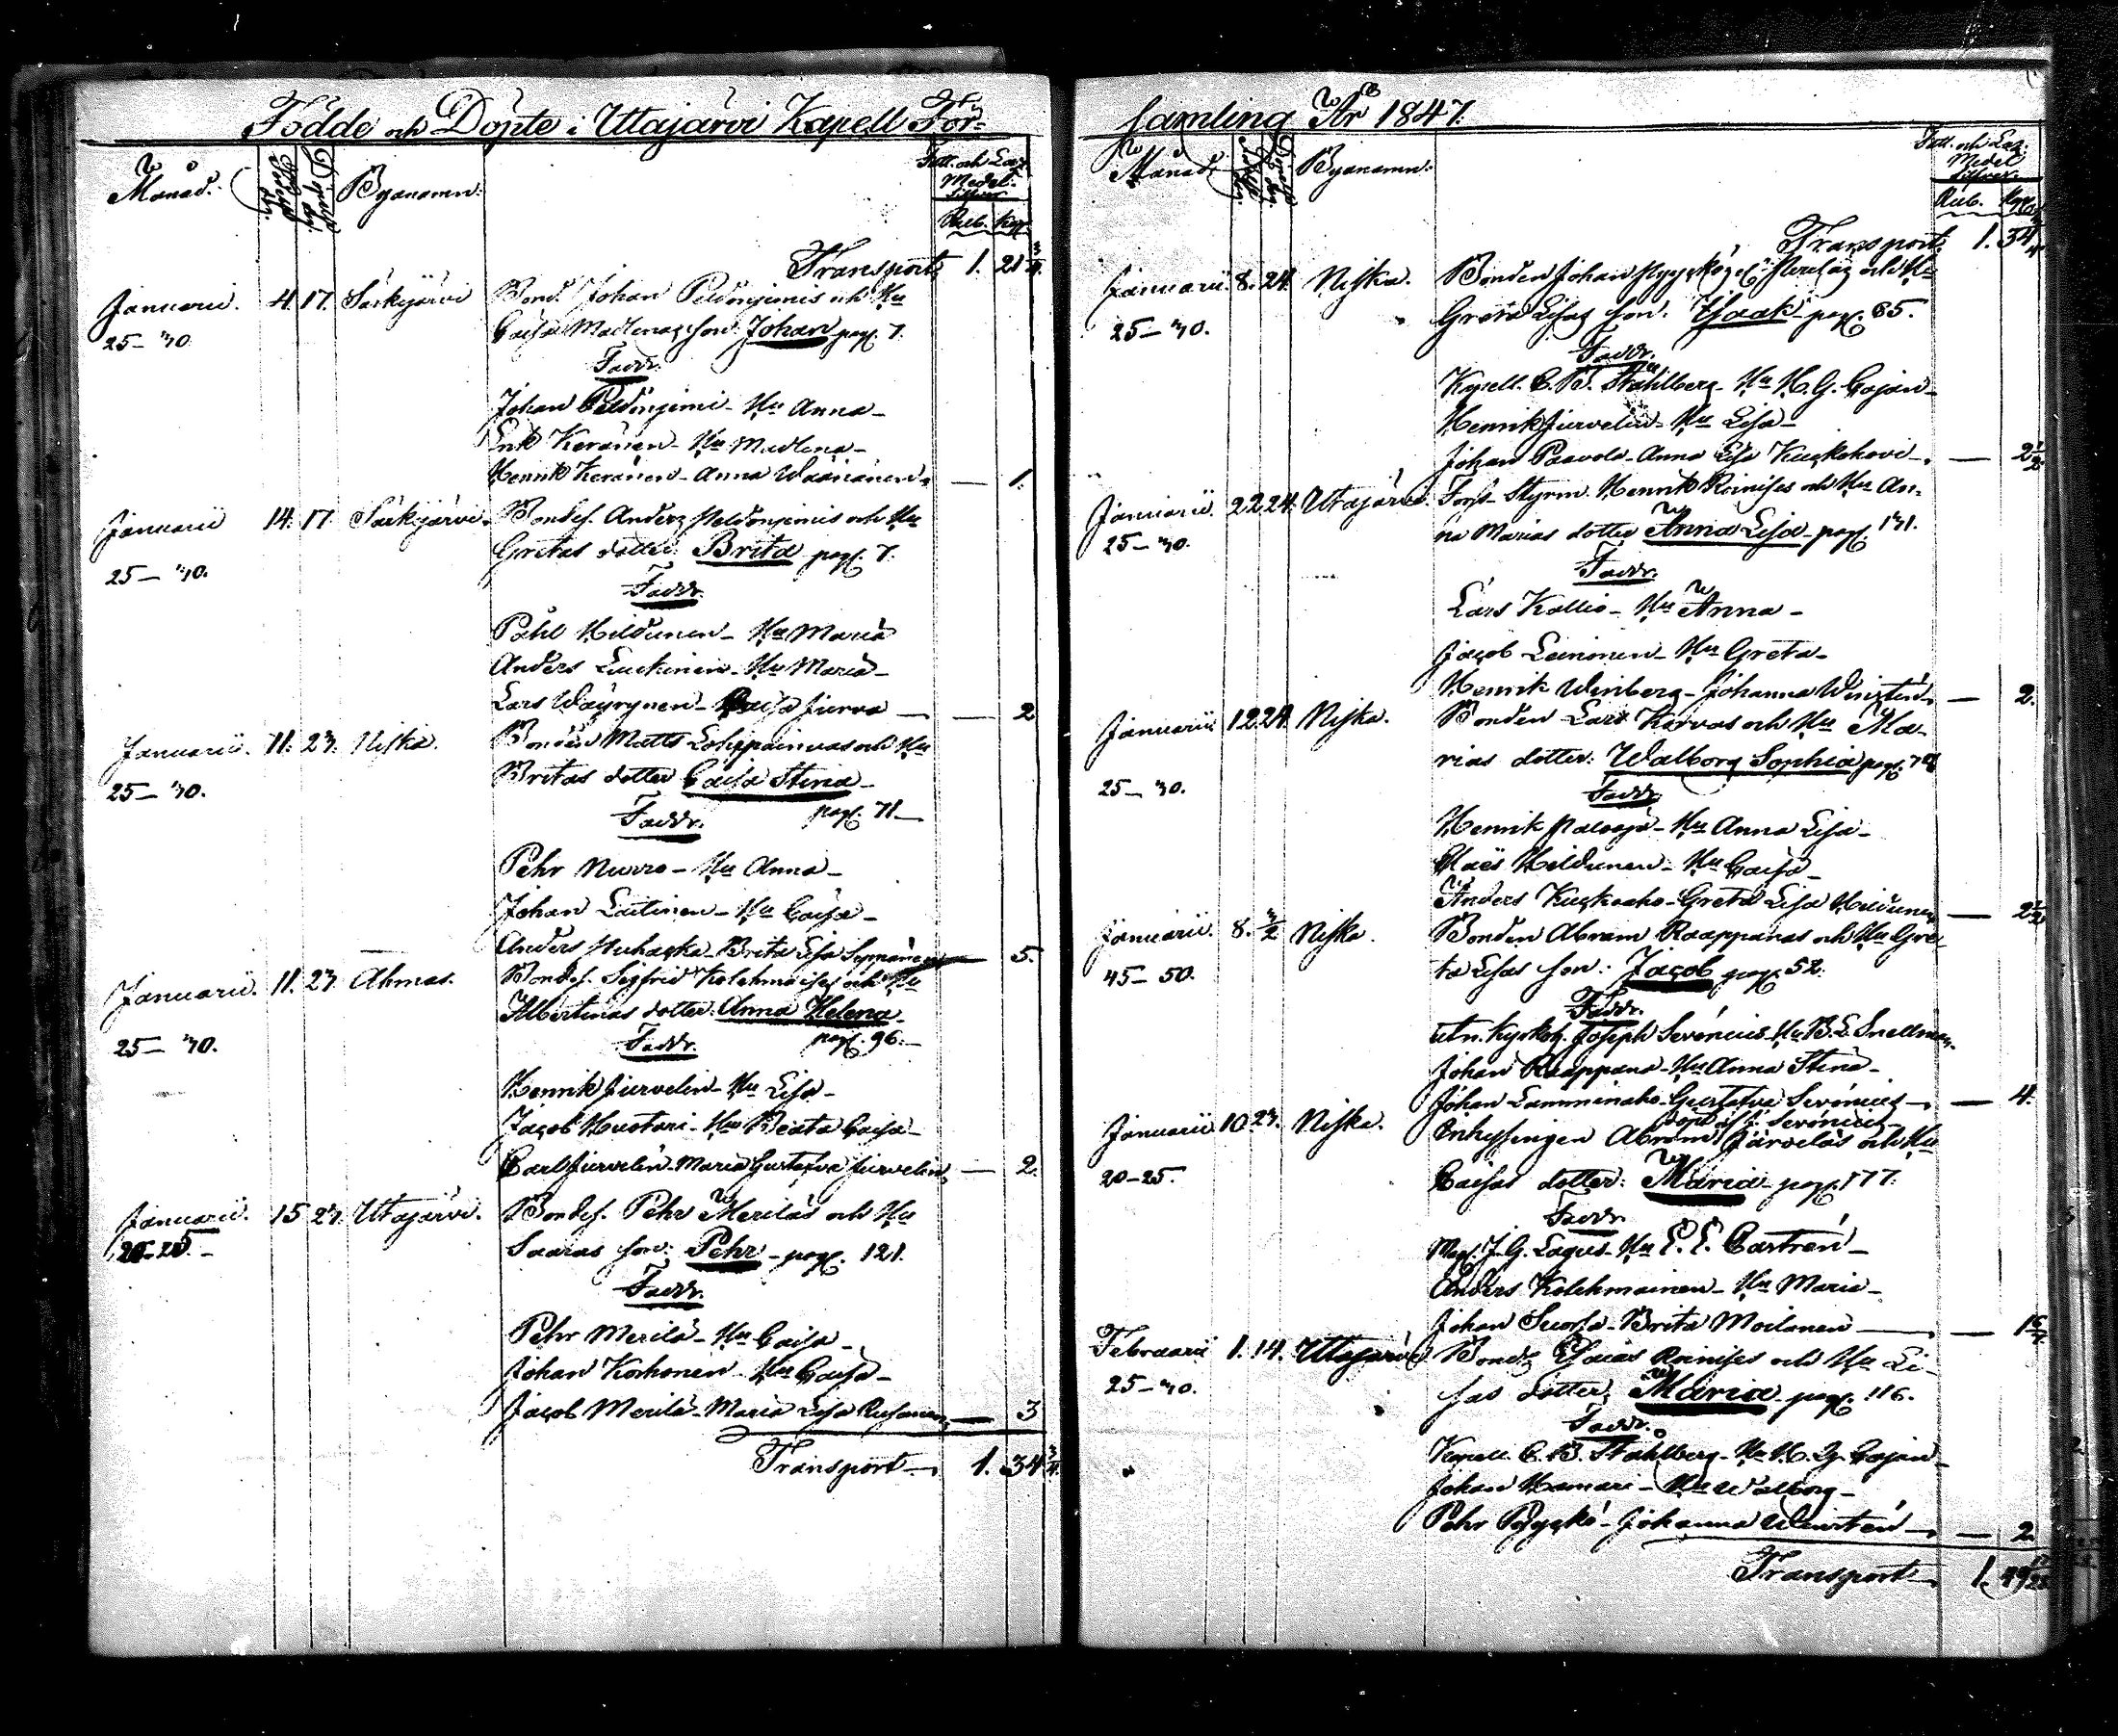 Födde och Döpte i Uttajärvi Kapell För-
Månad.
Byanamn.
Fatt. och Laz.
Medel.
Silfver
Rub. Kop.
Transport 1. 21 3/4
Januarii. 4. 17. Särkijärvi Bond. Johan Peldonjemis och Hu
25–30. Caisa Madlenas son: Johan pag. 7.
Faddr.
Johan Peldonjemi – Hu Anna –
Erik Keränen – Hu Madlena –
Henrik Keränen – Anna Wäänänen — 1.
Januarii 14. 17. Särkijärvi. Bondes. Anders Peldonjemis och Hu
25–30. Gretas dotter: Brita pag. 7.
Faddr.
Påhl Hildunen – Hu Maria
Anders Luukinen – Hu Maria –
Lars Wäyrynen – Caisa Jurva — 2
Januarii. 11. 23. Niska. Bonden Matts Lohipainvas och Hu
25–30. Britas dotter Caisa Stina –
Faddr. pag. 71.
Pehr Nurro – Hu Anna –
Johan Laitinen – Hu Caisa –
Anders Huhaska – Brita Lisa — 5.
Januarii. 11. 23. Ahmas. Bondes. Sigfrid Kolehmaises och Hu
25–30. Albertinas dotter Anna Helena
Faddr. pag. 96.
Henrik Jurvelin – Hu Lisa –
Jacob Huotari – Hu Beata Caisa –
Carl Jurvelin – Maria Gustafva Jurvelin — 2.
Januarii. 15 23. Utajärvi. Bondes. Pehr Meriläs och Hu
20–25. Saaras son: Pehr – pag. 121.
Faddr.
Pehr Merilä – Hu Caisa –
Johan Korhonen – Hu Caisa –
Jacob Merilä – Maria Lisa Rusanen — 3
Transport 1. 34 3/4
samling År 1847.
Månad.
Byanamn.
Fatt. och Laz.
Medel
Silfver.
Rub. Kop.
Transport 1. 34 3/4
Januarii. 8. 24. Niska. Bonden Johan och Hu
25–30. Greta Lisas son: Isaak – pag. 65.
Faddr.
Kapell. C. B. Ståhlberg – Hu H. G. Cajan –
Henrik Jurvelin – Hu Lisa –
Johan Paavola – Anna Lisa Kuckohovi — 2 1/2
Januarii. 22 24. Utajärvi. Fors-Styrm. Henrik Roinises och Hu An-
25–30. na Marias dotter Anna Lisa – pag. 131.
Faddr.
Lars Kallio – Hu Anna –
Jacob Leinonen – Hu Greta –
Henrik Winberg – Johanna Winstén — 2.
Januarii 12 24. Niska. Bonden Lars Karvas och Hu Ma-
25–30. rias dotter: Walborg Sophia pag.
Faddr.
Henrik Paloaja – Hu Anna Lisa –
Claës Hildunen – Hu Caisa –
Anders Kuckoaho – Greta Lisa Hildunen — 2 1/2
Januarii. 8. 3/2 Niska. Bonden Abram Raappanas och Hu Gre-
45–50. ta Lisas son: Jacob pag. 52.
Faddr.
utn. Kyrkoh. Joseph Serénius – Hu B. L. Snellman.
Johan Raappana – Hu Anna Stina –
Johan Lamminaho – Gustafva Serénius — 4.
döpt af J. Serénius
Januarii 10. 23. Niska. Enhysingen Abram Järveläs och Hu
20–25. Caisas dotter: Maria – pag. 177.
Faddr.
Mag. J. G. Lagus – Hu E. E. Castrén –
Anders Kolehmainen – Hu Maria –
Johan Suorsa – Brita Moilanen — 1
Februarii 1. 14. Uttajärvi Bond. Esaias Roinises och Hu Li-
25–30. sas dotter: Maria – pag. 116.
Faddr.
Kapell. C. B. Ståhlberg – Hu H. G. Cajan –
Johan Hamari – Hu Walborg –
Pehr Pyyckö – Johanna Winstén — 2
Transport 1.